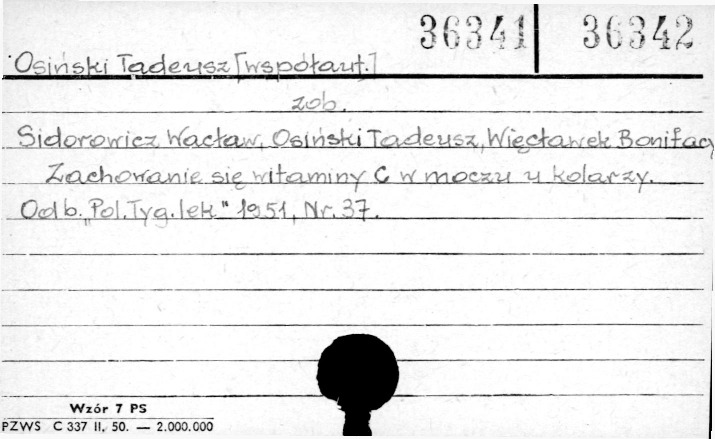 36341 36342
Osiński Tadeusz [współaut.]
zob.
Sidorowicz Wacław, Osiński Tadeusz, Więcławek Bonifacy
Zachowanie się witaminy C w moczu u kolarzy.
Odb. „Pol. Tyg. lek." 1951, Nr. 37.
Wzór 7 PS
PZWS C 337 II. 50. — 2.000.000